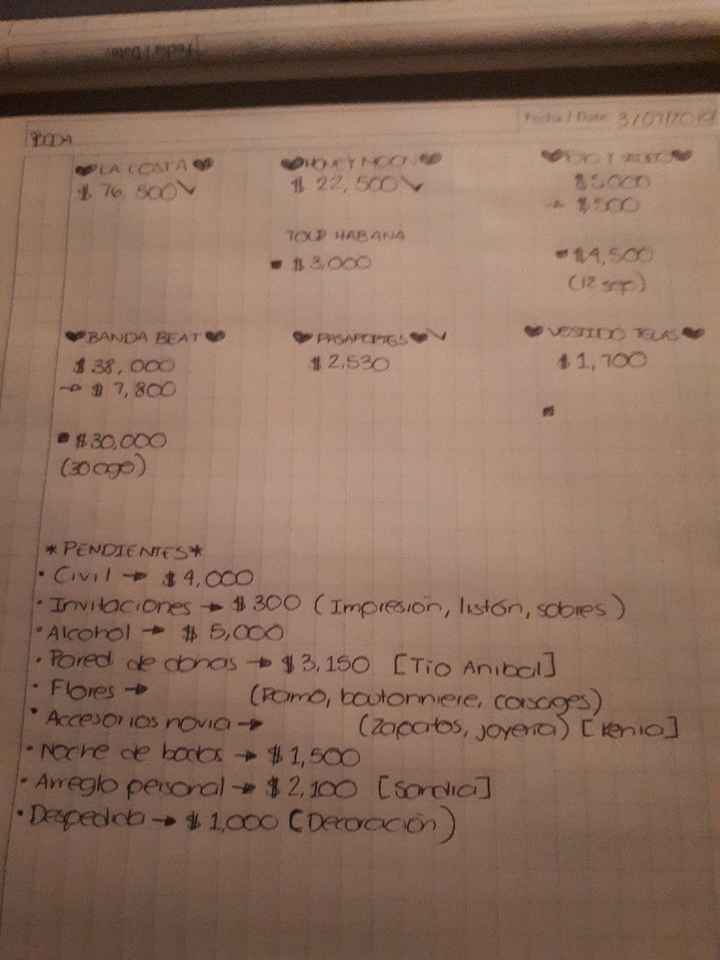 Fecha / Date
BODA
Fecha / Date: 3/07/2019
LA COSTA
$ 76,500
HONEY MOON
$ 22,500
TOUR HABANA
$3,000
FOTO Y VIDEO
$5000
$500
$4,500
(12 sep)
BANDA BEAT
$38,000
$7,800
$30,000
(30 ago)
PASAPORTES
$2,530
VESTIDO TELAS
$1,700
*PENDIENTES*
• Civil → $4,000
• Invitaciones → $300 (Impresión, listón, sobres)
• Alcohol → $5,000
• Pared de donas → $3,150 [Tío Anibal]
• Flores → (Ramo, boutonniere, corsages)
• Accesorios novia → (Zapatos, joyería) [Kenia]
• Noche de bodas → $1,500
• Arreglo personal → $2,100 [Sandia]
• Despedida → $1,000 (Decoración)